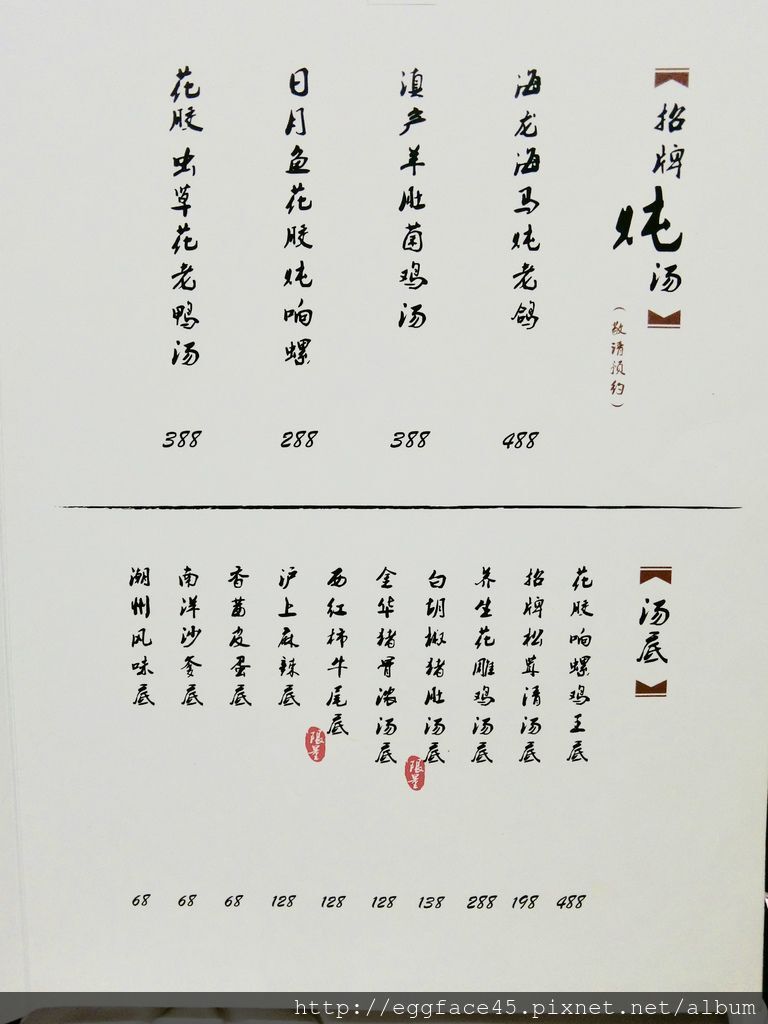 招牌炖汤
（敬请预约）
海龙海马炖老鸽
488
滇产羊肚菌鸡汤
388
日月鱼花胶炖响螺
288
花胶虫草花老鸭汤
388
汤底
花胶响螺鸡王底
488
招牌松茸清汤底
198
养生花雕鸡汤底
288
白胡椒猪肚汤底
限量
138
金华猪骨浓汤底
128
西红柿牛尾底
限量
128
沪上麻辣底
128
香茜皮蛋底
68
南洋沙爹底
68
潮州风味底
68
http://eggface45.pixnet.net/album